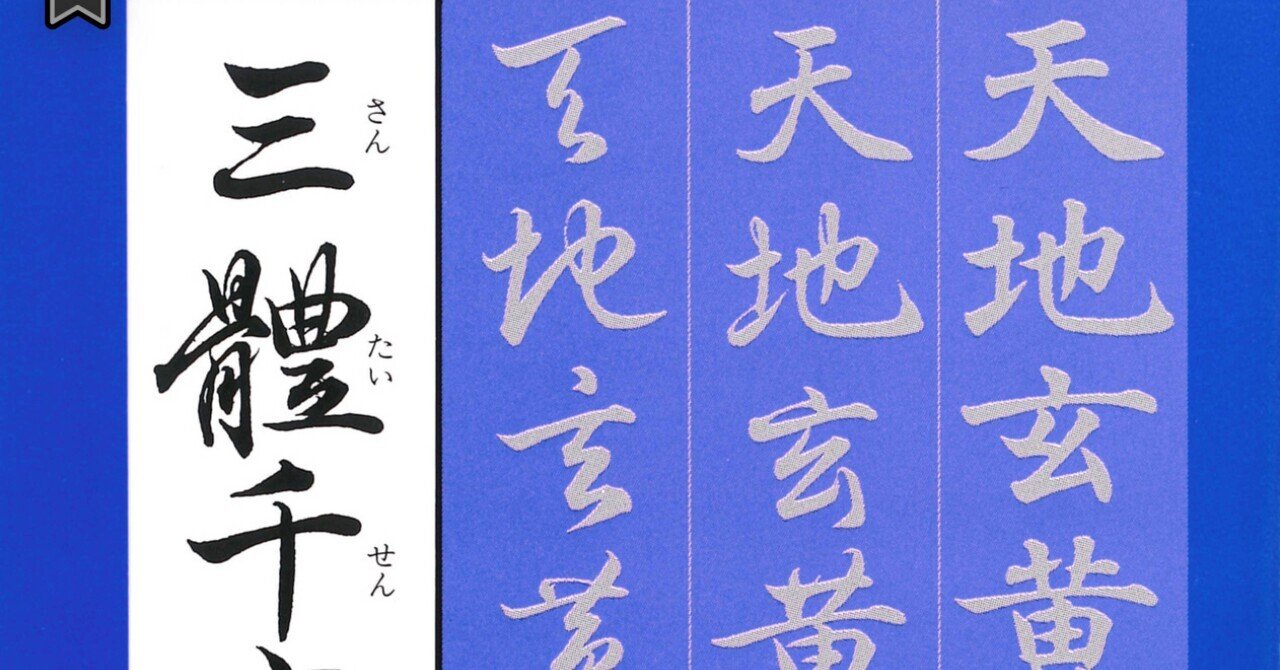 天地玄黄
天地玄黄
天地玄黄
さん たい せん
三體千